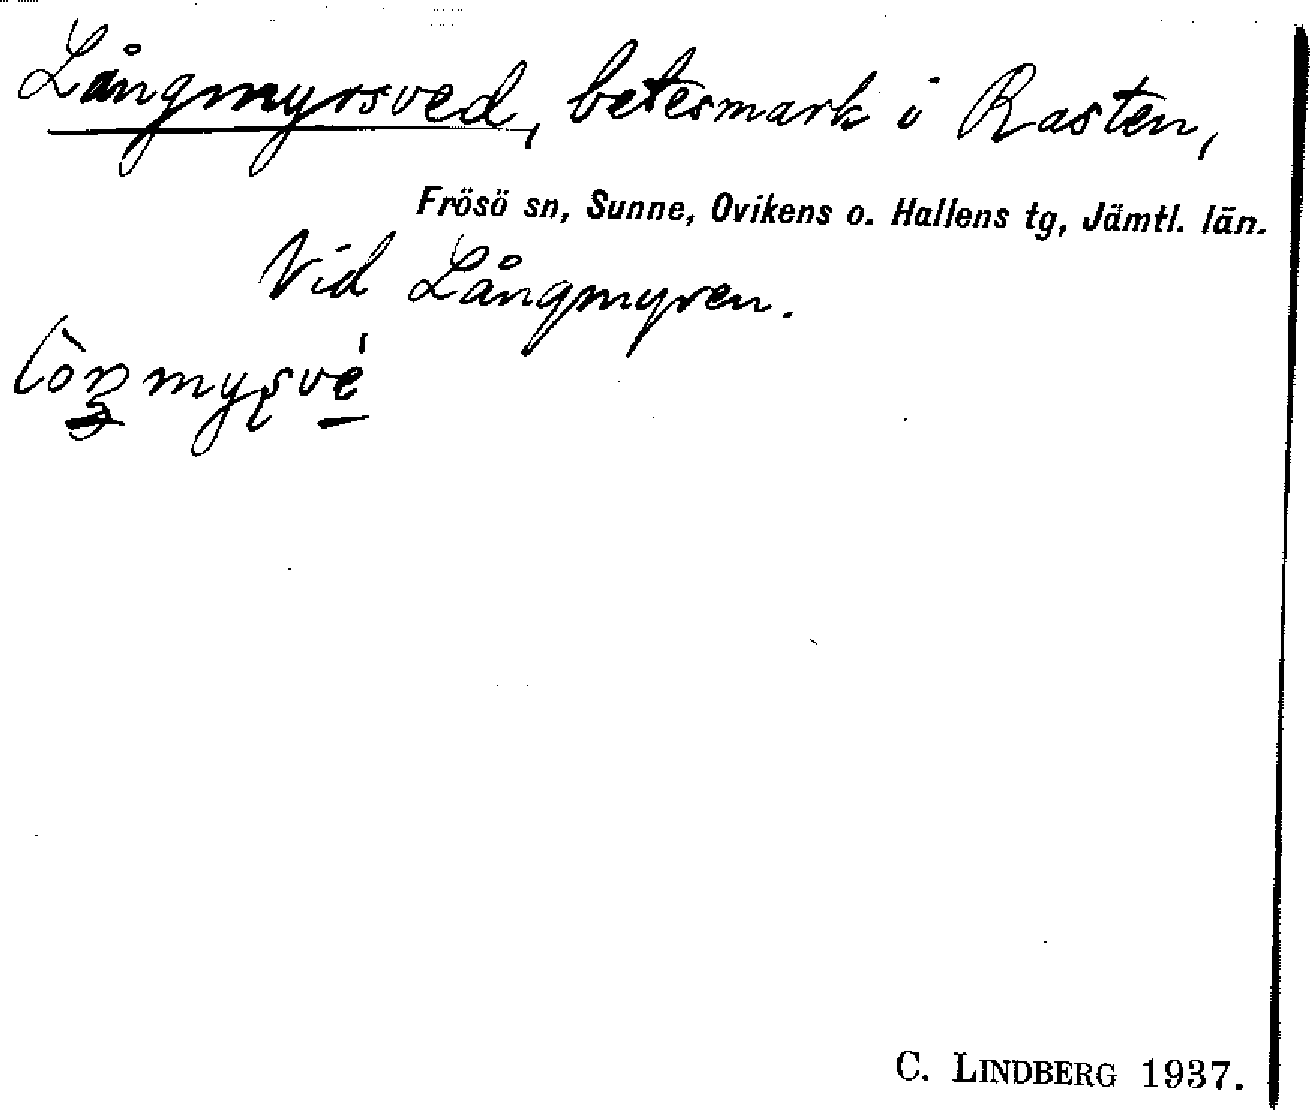 Långmyrsved, betesmark i Rasten,
Frösö sn, Sunne, Ovikens o. Hallens tg, Jämtl. län.
Vid Långmyren.
C. LINDBERG 1937.